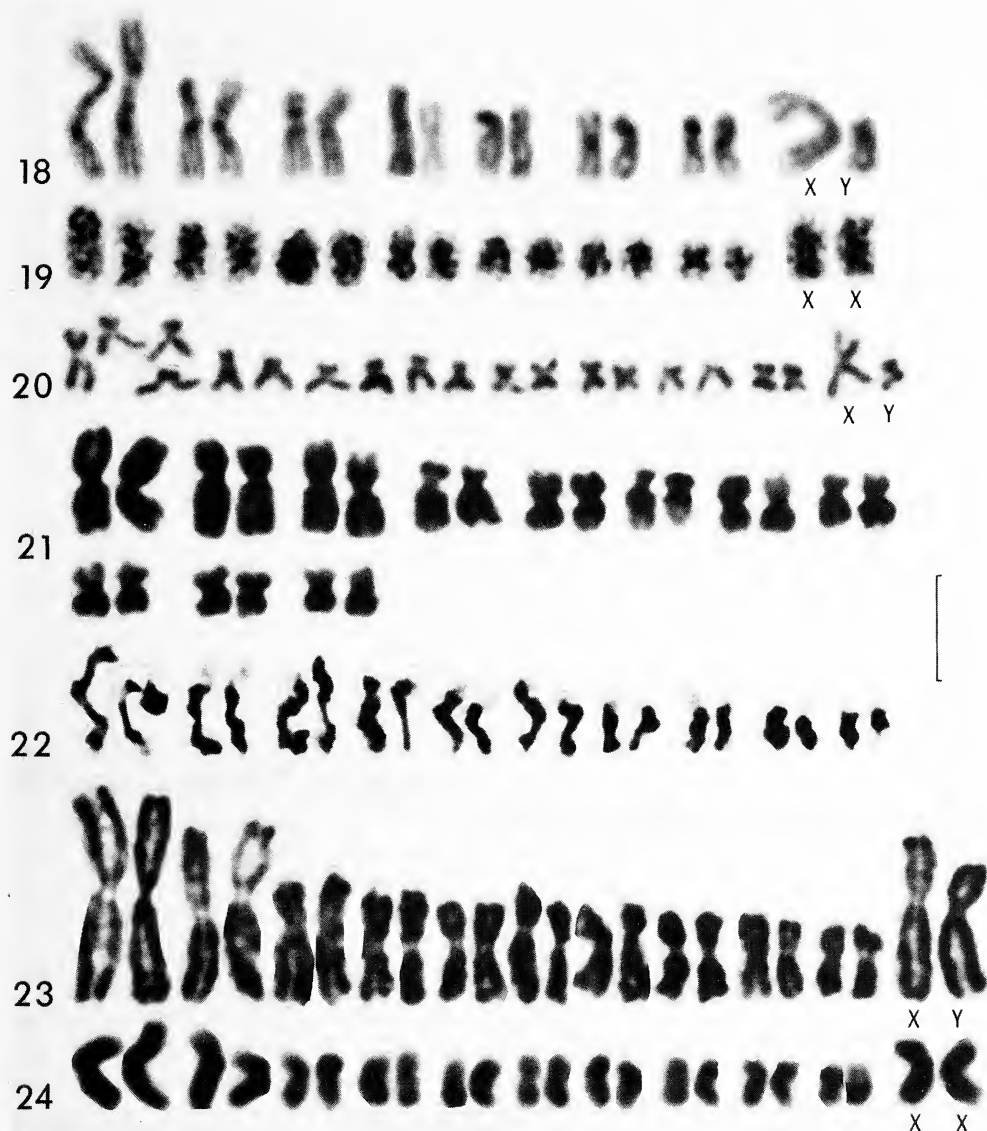 18
X Y
19
X X
20
X Y
21
22
23
X Y
24
X X